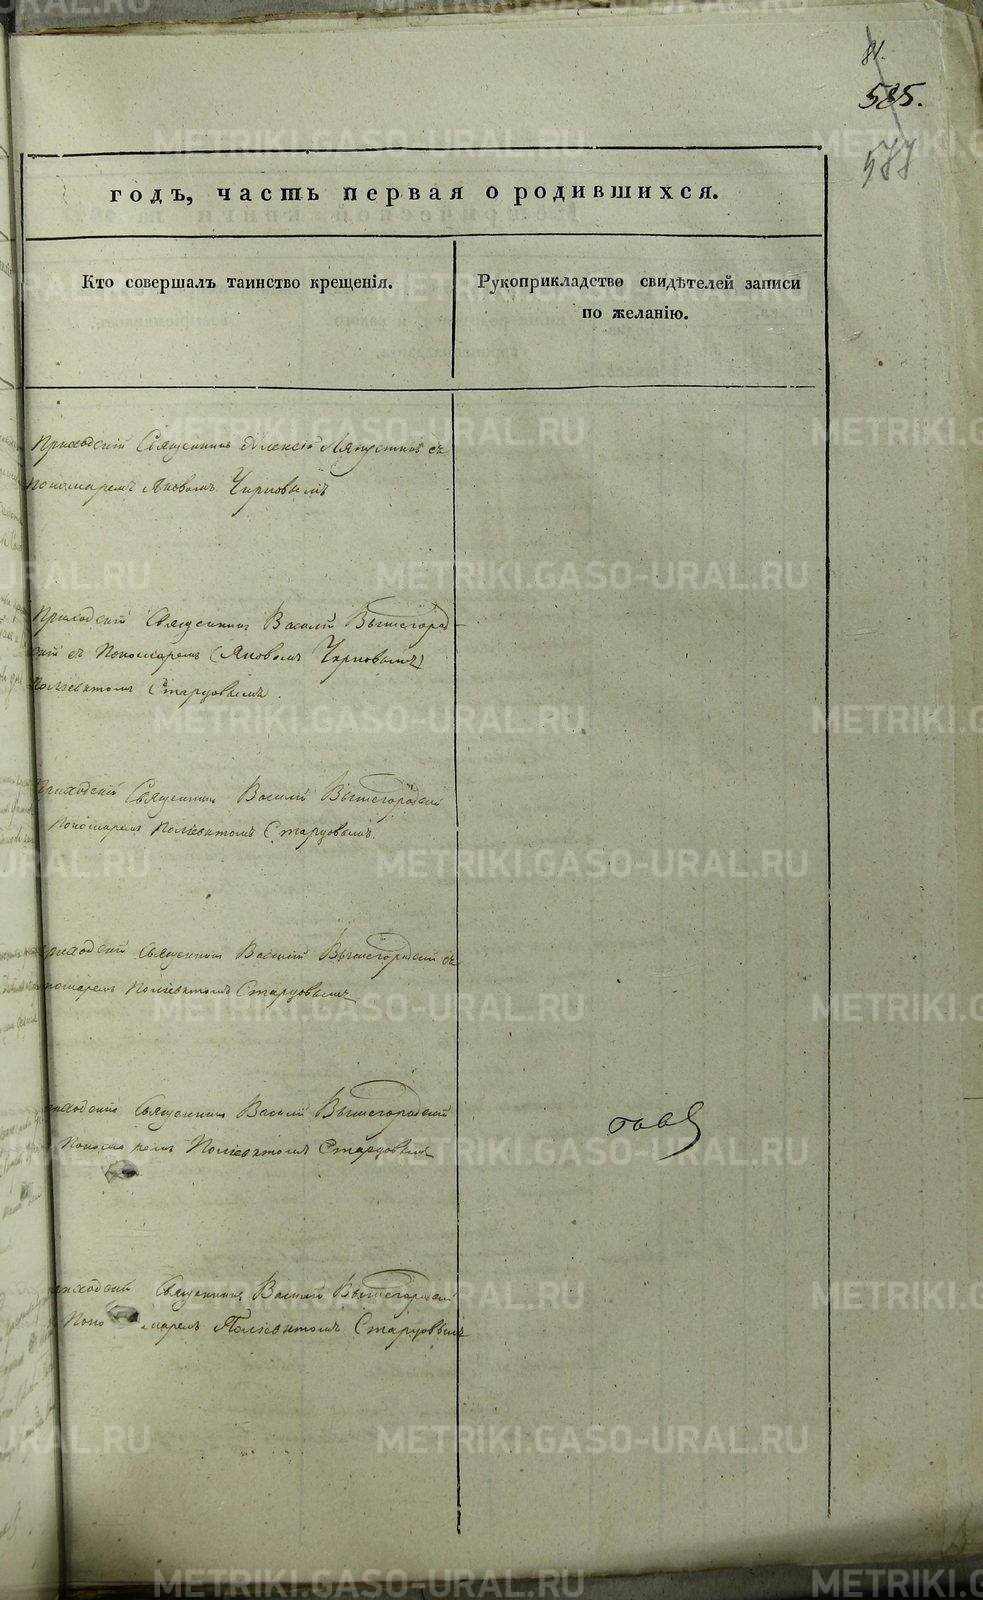 81.
585.
588
годъ, часть первая о родившихся.
Кто совершалъ таинство крещенія.
Рукоприкладство свидѣтелей записи
по желанію.
Приходскій Священникъ Алексій Ляпустинъ съ
пономаремъ Яковомъ Чирковымъ
Приходскій Священникъ Василій Вышегород
скій съ Пономаремъ (Яковомъ Чирковымъ)
Поліевктомъ Старцовымъ.
Приходскій Священникъ Василій Вышегородскій
Пономаремъ Поліевктомъ Старцовымъ.
приходскій Священникъ Василій Вышегородскій съ
пономаремъ Поліевктомъ Старцовымъ
приходскій Священникъ Василій Вышегородскій
Пономаремъ Поліевктомъ Старцовымъ
приходскій Священникъ Василій Вышегородскій
Пономаремъ Поліевктомъ Старцовымъ
METRIKI.GASO-URAL.RU